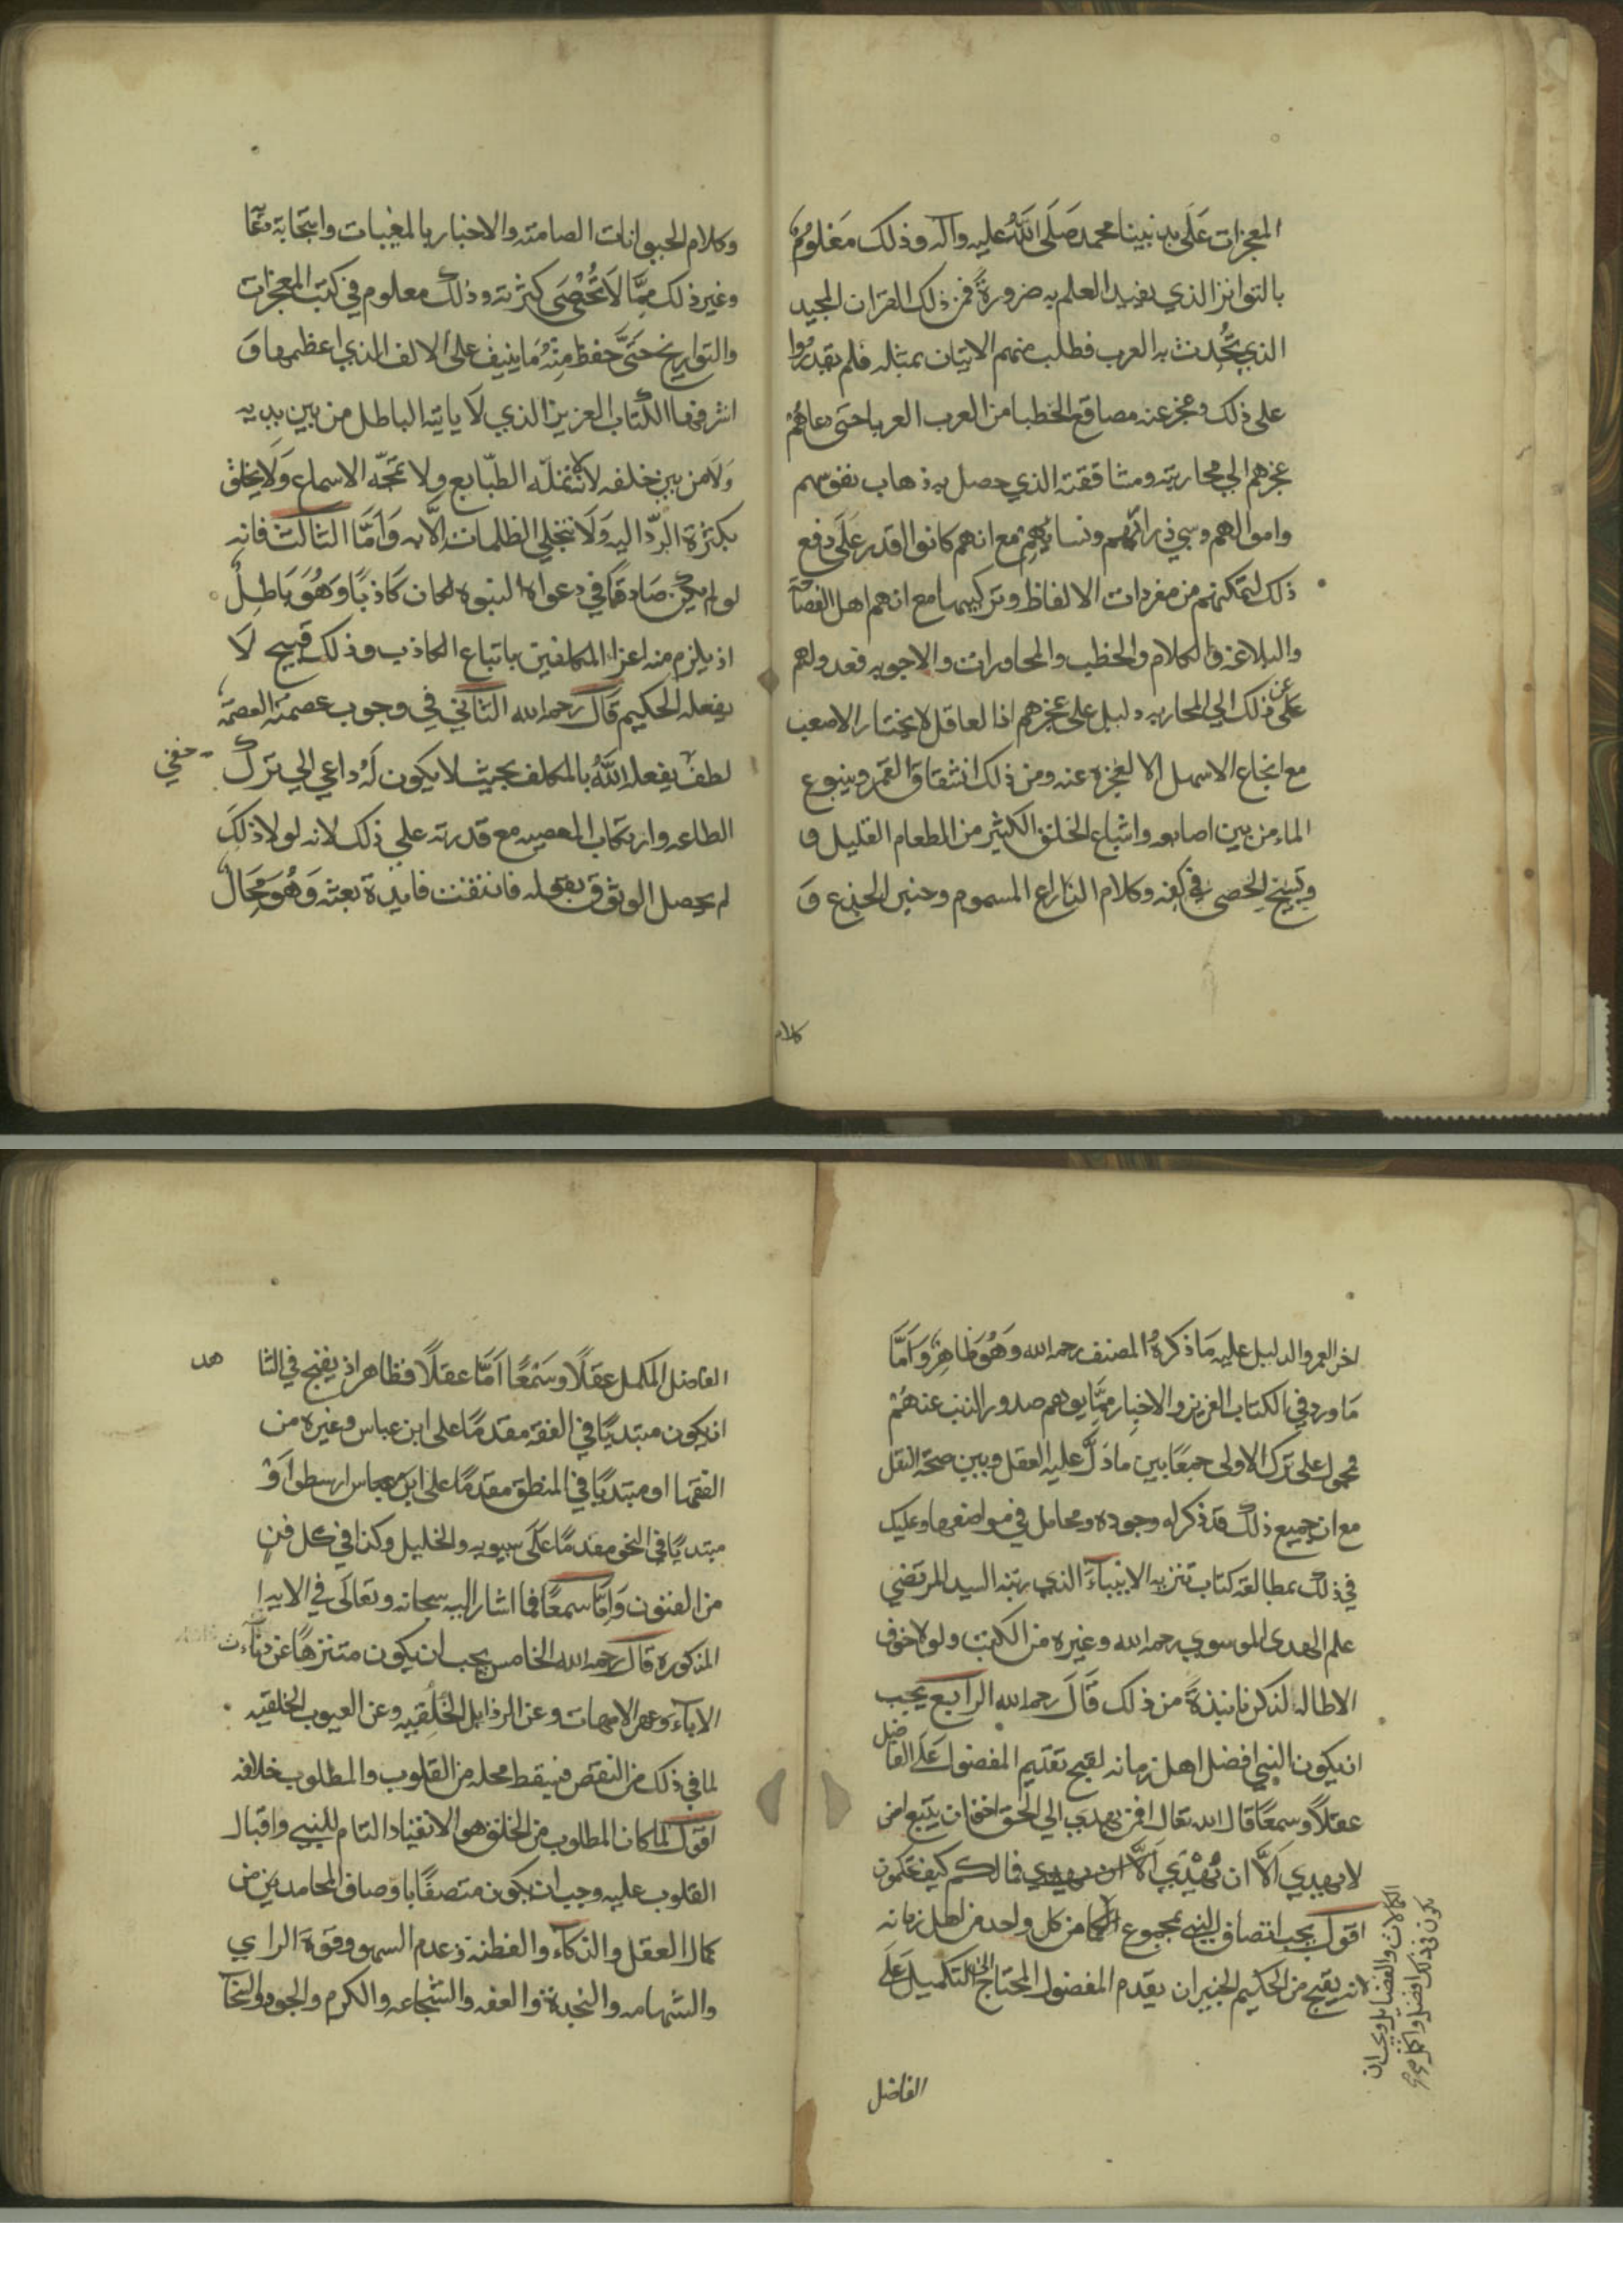 المعجزات على يد نبينا محمد صَلَى اللهُ عليه وآله وذلك مَعْلوُمٌ
بالتواتر الذي يفيد العلم به ضرورةً فمن ذلك القران المجيد
الذي تحُدث به العرب فطلب منهم الاتيان بمثله فلم يقدرُوا
على ذلك وعجز عنه مصاقع الخطبا من العرب العربا حتى دعاهُمْ
عجزهم الي محاربته ومشاققته الذي حصل به ذهاب نفوسهم
واموالهم وسبي ذراريهم ونسايهم مع انهم كانوا اقدر عَلَى دفع
ذلك لتمكنهم من مفردات الالفاظ وتركيبها مع انهم اهل الفصاحة
والبلاغه والكلام والخطب والمحاورات والاجوبه فعدولهم
عن
عَلى ذلك الي المحاربه دليل على عجزهم اذ العاقل لا يختار الاصعب
مع انجاع الاسهل الا لعجزه عنه ومن ذلك انشقاق القمر وينبوع
الماء من بين اصابعه واشباع الخلق الكثير من الطعام القليل و
وتسبيح الحصى في كفه وكلام الذراع المسموم وحنين الجذع وَ
كلام
وكلام الحيوانات الصامته والاخبار بالمغيبات واستجابة دعا
وغير ذلك مِمَّا لاَ تُحْصَى كثرته وذلك معلوم في كتب المعجزات
والتواريخ حتَىَّ حفظ مِنْهُ مَا ينيف على الالف الذي اعظمها وَ
اشرفها الكتاب العزيز الذي لاَ ياتيه الباطل من بين يديه
وَلاَ من بين خلفه لا تمله الطبّايع ولا تمجّه الاسماع وَلَا يخلق
بكثرة الردّ اليه وَلَا تنجلي الظلمات الاَّ به وَاَمَّا الثالث فانه
لو لم يكن صَادِقًا في دعواه النبوه لكان كَاذبًا وَهُوَ بَاطِلٌ
اذ يلزم منه اغراء المكلفين باتباع الكاذب وذلك قبيح لَا
يفعله الحكيم قَالَ رحمه الله الثاني في وجوب عصمته العصمة
خفي
لطفٌ يفعله اللَّهُ بالمكلف بحيث لا يكون لَهُ داعي الي ترك
الطاعه وارتكاب المعصيه مع قدرته علي ذلك لانه لولا ذلِكَ
لم يحصل الوثوق بقوله فانتفت فايدة بعثته وَهُوَ مُحَالٌ
اخر العمر والدليل عليه مَا ذكرهُ المصنف رحمه الله وَهُوَ ظَاهِرٌ وَاَمَّا
مَا ورد في الكتاب العزيز والاخبار ممَّا يوهم صدور الذنب عنهُمْ
فمحمول على ترك الاولى جمعًا بين ماذلَّ عليه العقل وبين صحة النقل
مع ان جميع ذلك قد ذكر له وجوه ومحامل في مواضعها وعليك
في ذلك بمطالعة كتاب تنزيه الانبياءَ الذي رتبه السيد المرتضى
علم الهدى الموسوي رحمه الله وغيره من الكتب ولولا خوف
الاطاله لذكرنا نبذةً من ذلك قَالَ رحمه الله الرابع يجب
ان يكون النبي افضل اهل زمانه لقبح تقديم المفضول عَلَى الفاضل
عقلاً وسمعًا قال الله تعال افمن يهدي الي الحق احق ان يتبع امن
لا يهدي اَلَّا ان يُهْدَي الَّا ان يهدي فمالكم كيف تحكمون
اقول يجب اتصاف النبي بمجموع الكما من كل واحد من اهل زمانه
لانه يقبح من الحكيم الخبير ان يقدم المفضول المحتاج الى التكميل عَلَى
الكمالات والفضايل ويجب ان
يكون في ذلك افضل واكمل صح
الفاضل
الفاضل المكمل عقلًا وسَمْعًا اَمَّا عقلًا فظاهر اذ يقبح في الشا
هد
ان يكون مبتديًا في الفقه مقدمًا على ابن عباس وغيره من
الفقها او مبتديًا في المنطق مقدمًا على ابن عباس ارسطو اَوْ
مبتديًا في النحو مقدمًا عَلَى سيبويه والخليل وكذا في كل فنٍ
من الفنون وَاَمَّا سمعًا فما اشار اليه سبحانه وتعالَى في الايه
المذكوره قَالَ رحمه الله الخامس يجب ان يكون متنزهًا عن دناءت
الاباء وعهر الامهات وعن الرذايل الخُلقِيه وعن العيوب الخلقيه
لما في ذلك من النقص فيسقط محله من القلوب والمطلوب خلافه
اقول لما كان المطلوب من الخلق هو الانقياد التام للنبي واقبال
القلوب عليه وجب ان يكون متصفًا باوصاف المحامد من
كمال العقل والذكاء والفطنه وعدم السهو وقوة الراي
والشهامه والنجدة والعفه والشجاعه والكرم والجود والسخآ